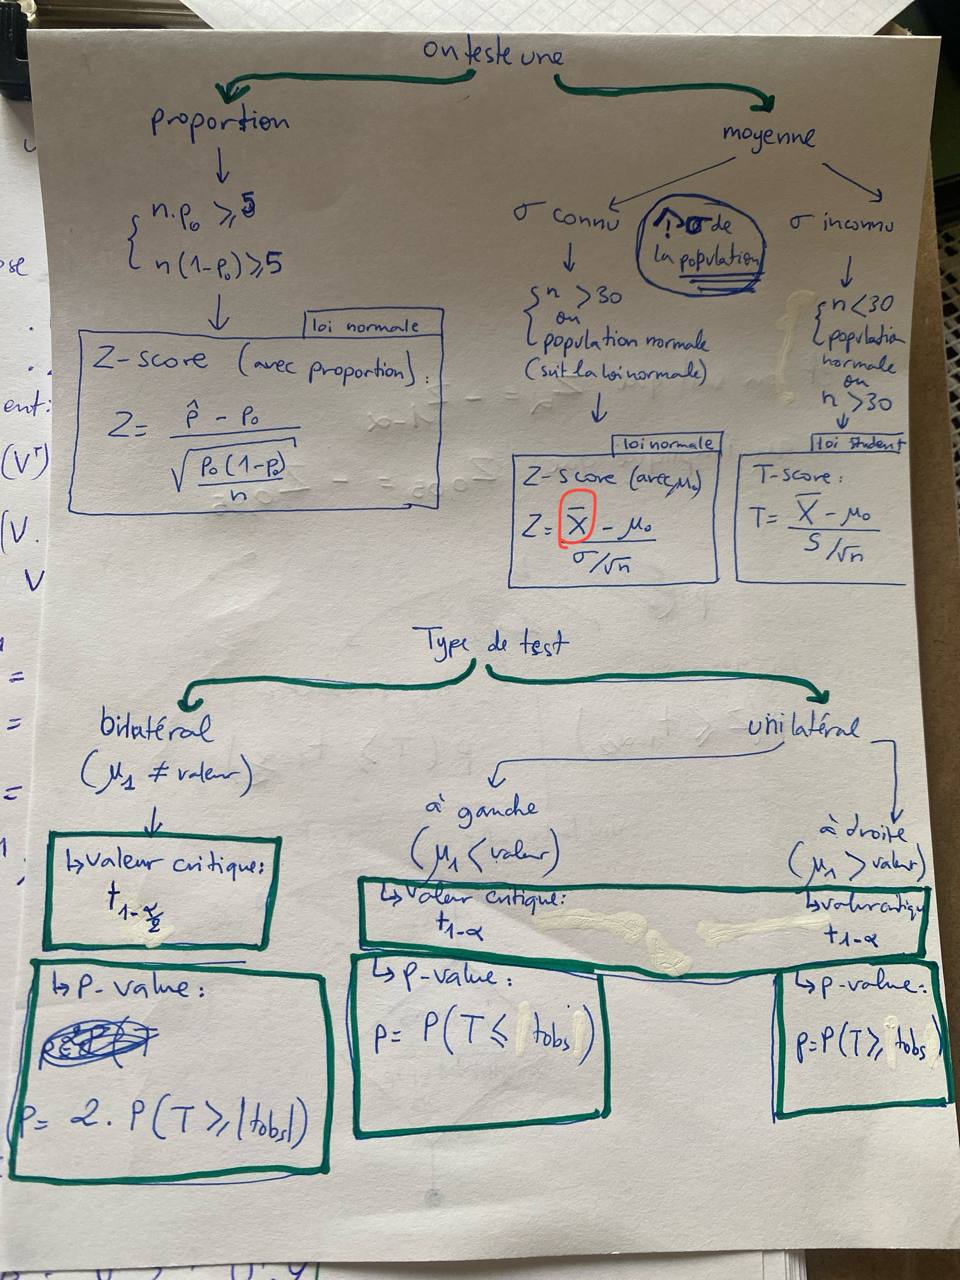 On teste une
proportion
n.p₀ ⩾ 5
n(1-p₀) ⩾ 5
loi normale
Z-score (avec proportion):
Z = p̂ - p₀
√ p₀(1-p₀)
n
moyenne
σ connu
σ de
la population
σ inconnu
n > 30
ou
population normale
(suit la loi normale)
n < 30
population
normale
ou
n > 30
loi normale
Z-score (avec μ₀)
Z = X̄ - μ₀
σ/√n
loi student
T-score:
T = X̄ - μ₀
S/√n
Type de test
bilatéral
(μ₁ ≠ valeur)
↳ valeur critique:
t₁₋α/₂
↳ p-value:
p = 2. P(T ⩾ |tobs|)
unilatéral
à gauche
(μ₁ < valeur)
↳ valeur critique:
t₁₋α
↳ p-value:
p = P(T ⩽ tobs)
à droite
(μ₁ > valeur)
↳ valeur critique
t₁₋α
↳ p-value:
p = P(T ⩾ tobs)
ent: